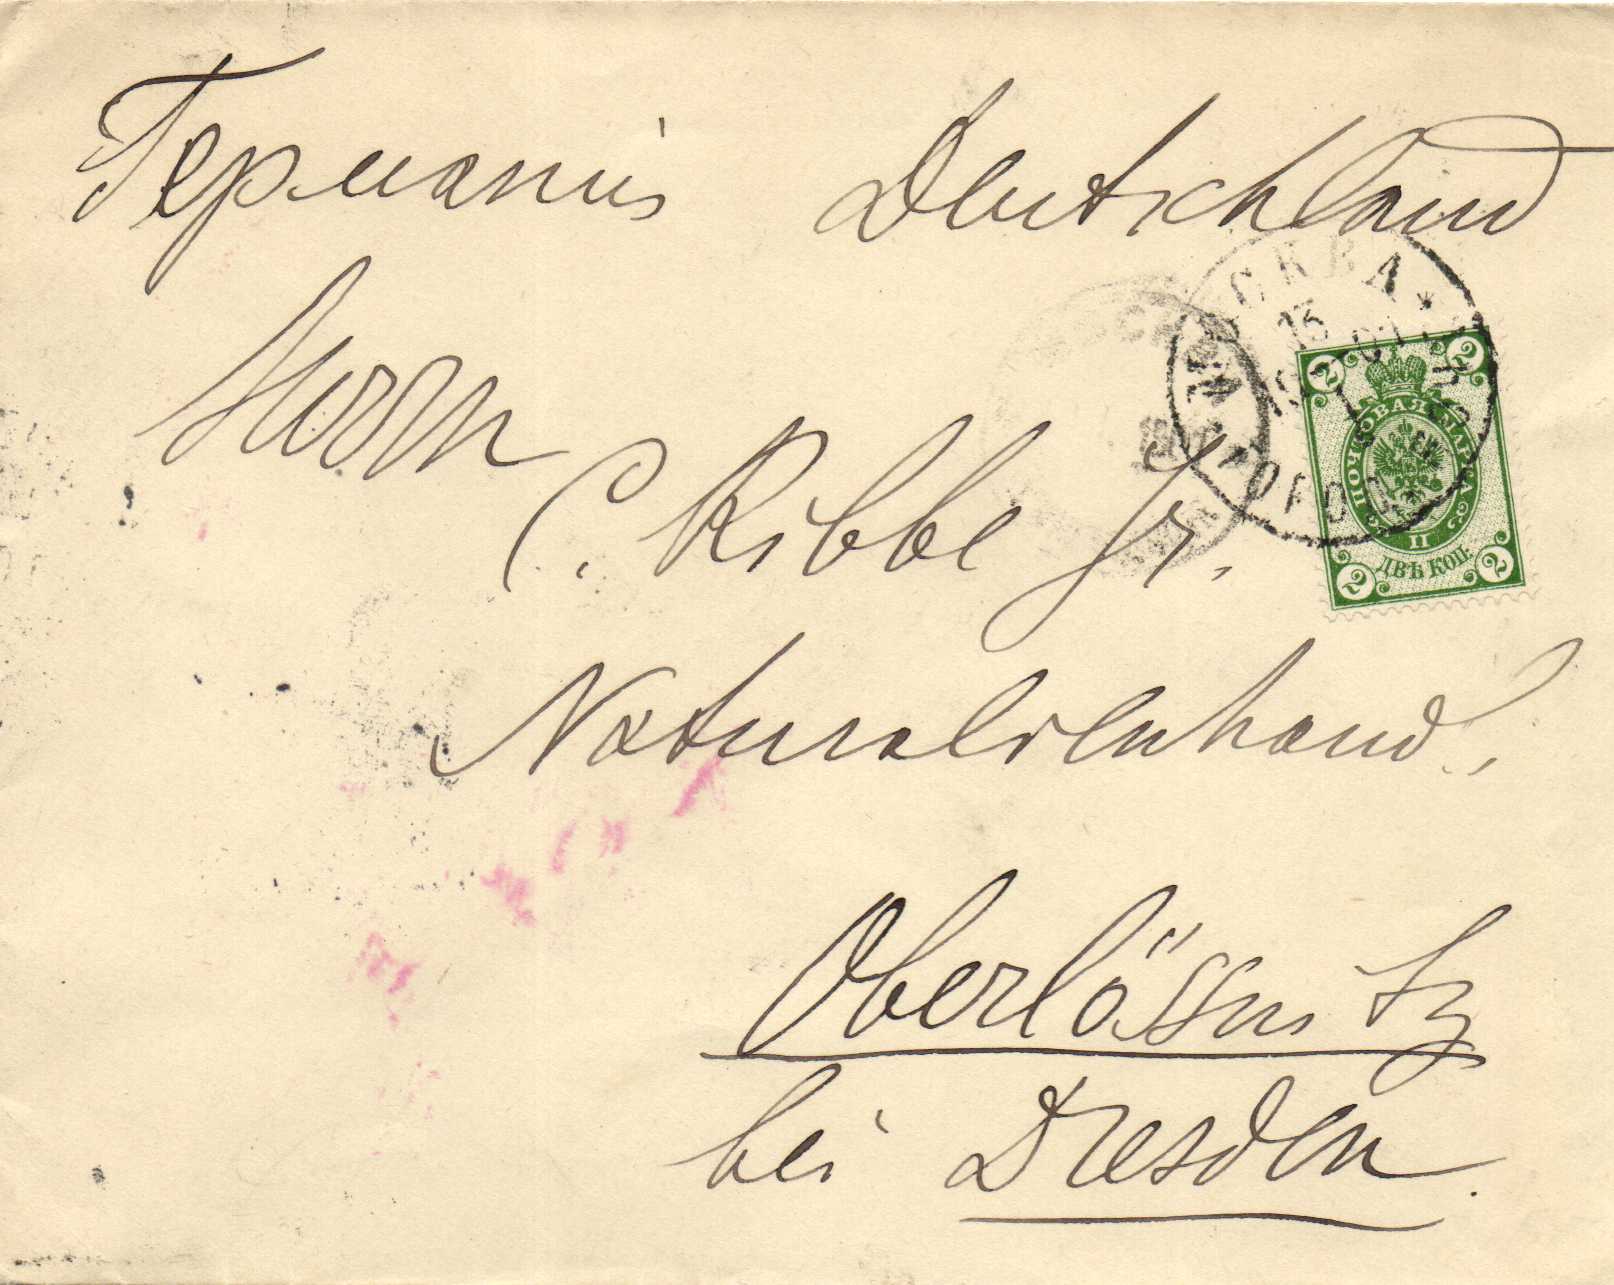 Германія Deutschland
Herrn
C. Ribbe Jr.
Naturalienhand.
Oberlössnitz
bei Dresden.
МОСКВА
13
ПОЧТОВАЯ МАРКА
2 2
II
ДВѢ КОП.
2 2